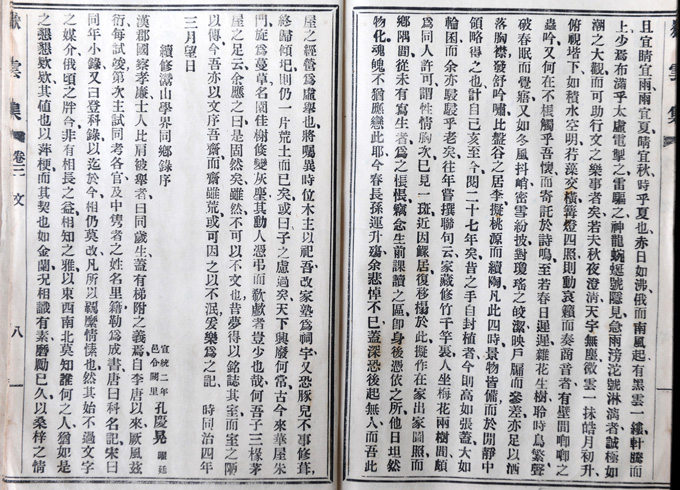 且宜晴宜雨宜夏晴宜秋時乎夏也赤日如沸俄而南風起有黑雲一縷軒騰而
上少焉布滿乎太虛電掣之雷驅之神龍蜿蜒號隱見急雨滂沱號淋漓者誠極如
潮之大觀而可助行文之樂事者矣若夫秋夜澄清天宇無塵微雲一抹皓月初升
俯視堦下如積水空明若藻交橫篝燈四照則動哀籟而奏商音者有壁間唧唧之
蟲吟又何在不根觸乎吾懷而寄託於詩鳴至若春日遲遲雜花生樹聆時鳥繁聲
破春眠而覺寤又如冬風抖峭密雪紛披對瓊瑤之皎潔映戶牖而參差亦足以洒
落胸襟發舒吟嘯比盤谷之居李擬桃源而續陶凡此四時景物皆備而於閒靜中
領略得之也計自己亥至今閱二十七年矣昔之手自封植者今則高如張蓋大如
輪囷而余亦駸駸乎老矣往年嘗撰聯句云家藏修竹千竿裏人坐梅花兩樹間頗
為同人許可謂性情胸次已見一斑近因蘇居復移榻於此擬作在家出家圖照而
鄉隅間從未有寫生者為之悵悵竊念生前課讀之區即身後憑依之所他日坦然
物化魂魄不猶應戀此耶今春長孫運升殤余悲悼不已蓋深恐後起無人而吾此
屋之經營為虛舉也將囑異時位木主以祀吾改家塾為祠宇又恐豚兒不事修葺
終歸傾圮則仍一片荒土而已矣或曰子之慮過矣天下興廢何常古今來華屋朱
門旋為蔓草名園佳榭倏變灰塵其動人憑弔而欷歔者豈少也哉何吾子三椽茅
屋之足云余應之曰是固然矣雖然不可以不文也昔夢得以銘誌其室而室之陋
以傳今吾亦以文序吾齋而齋雖荒或可因之以不泯爰樂為之記　時同治四年
三月望日
續修潛山學界同鄉錄序
宣統二年邑令闕里孔慶晃曜廷
漢郡國察孝廉士人比肩被舉者曰同歲生蓋有梯附之義焉自李唐以來厥風茲
衍每試竣第次主試同考各官及中雋者之姓名里籍勒為成書唐曰科名記宋曰
同年小錄又曰登科錄以迄於今相仍莫改凡所以羈縻情愫也然其始不過文字
之媒介俄頃之牉合非有相長之益相知之雅以東西南北莫知誰何之人猶如是
之懇懇欵欵其値也以萍梗而其契也如金蘭況相識有素磨勵已久以桑梓之情
嶽雲集
卷三　文
八